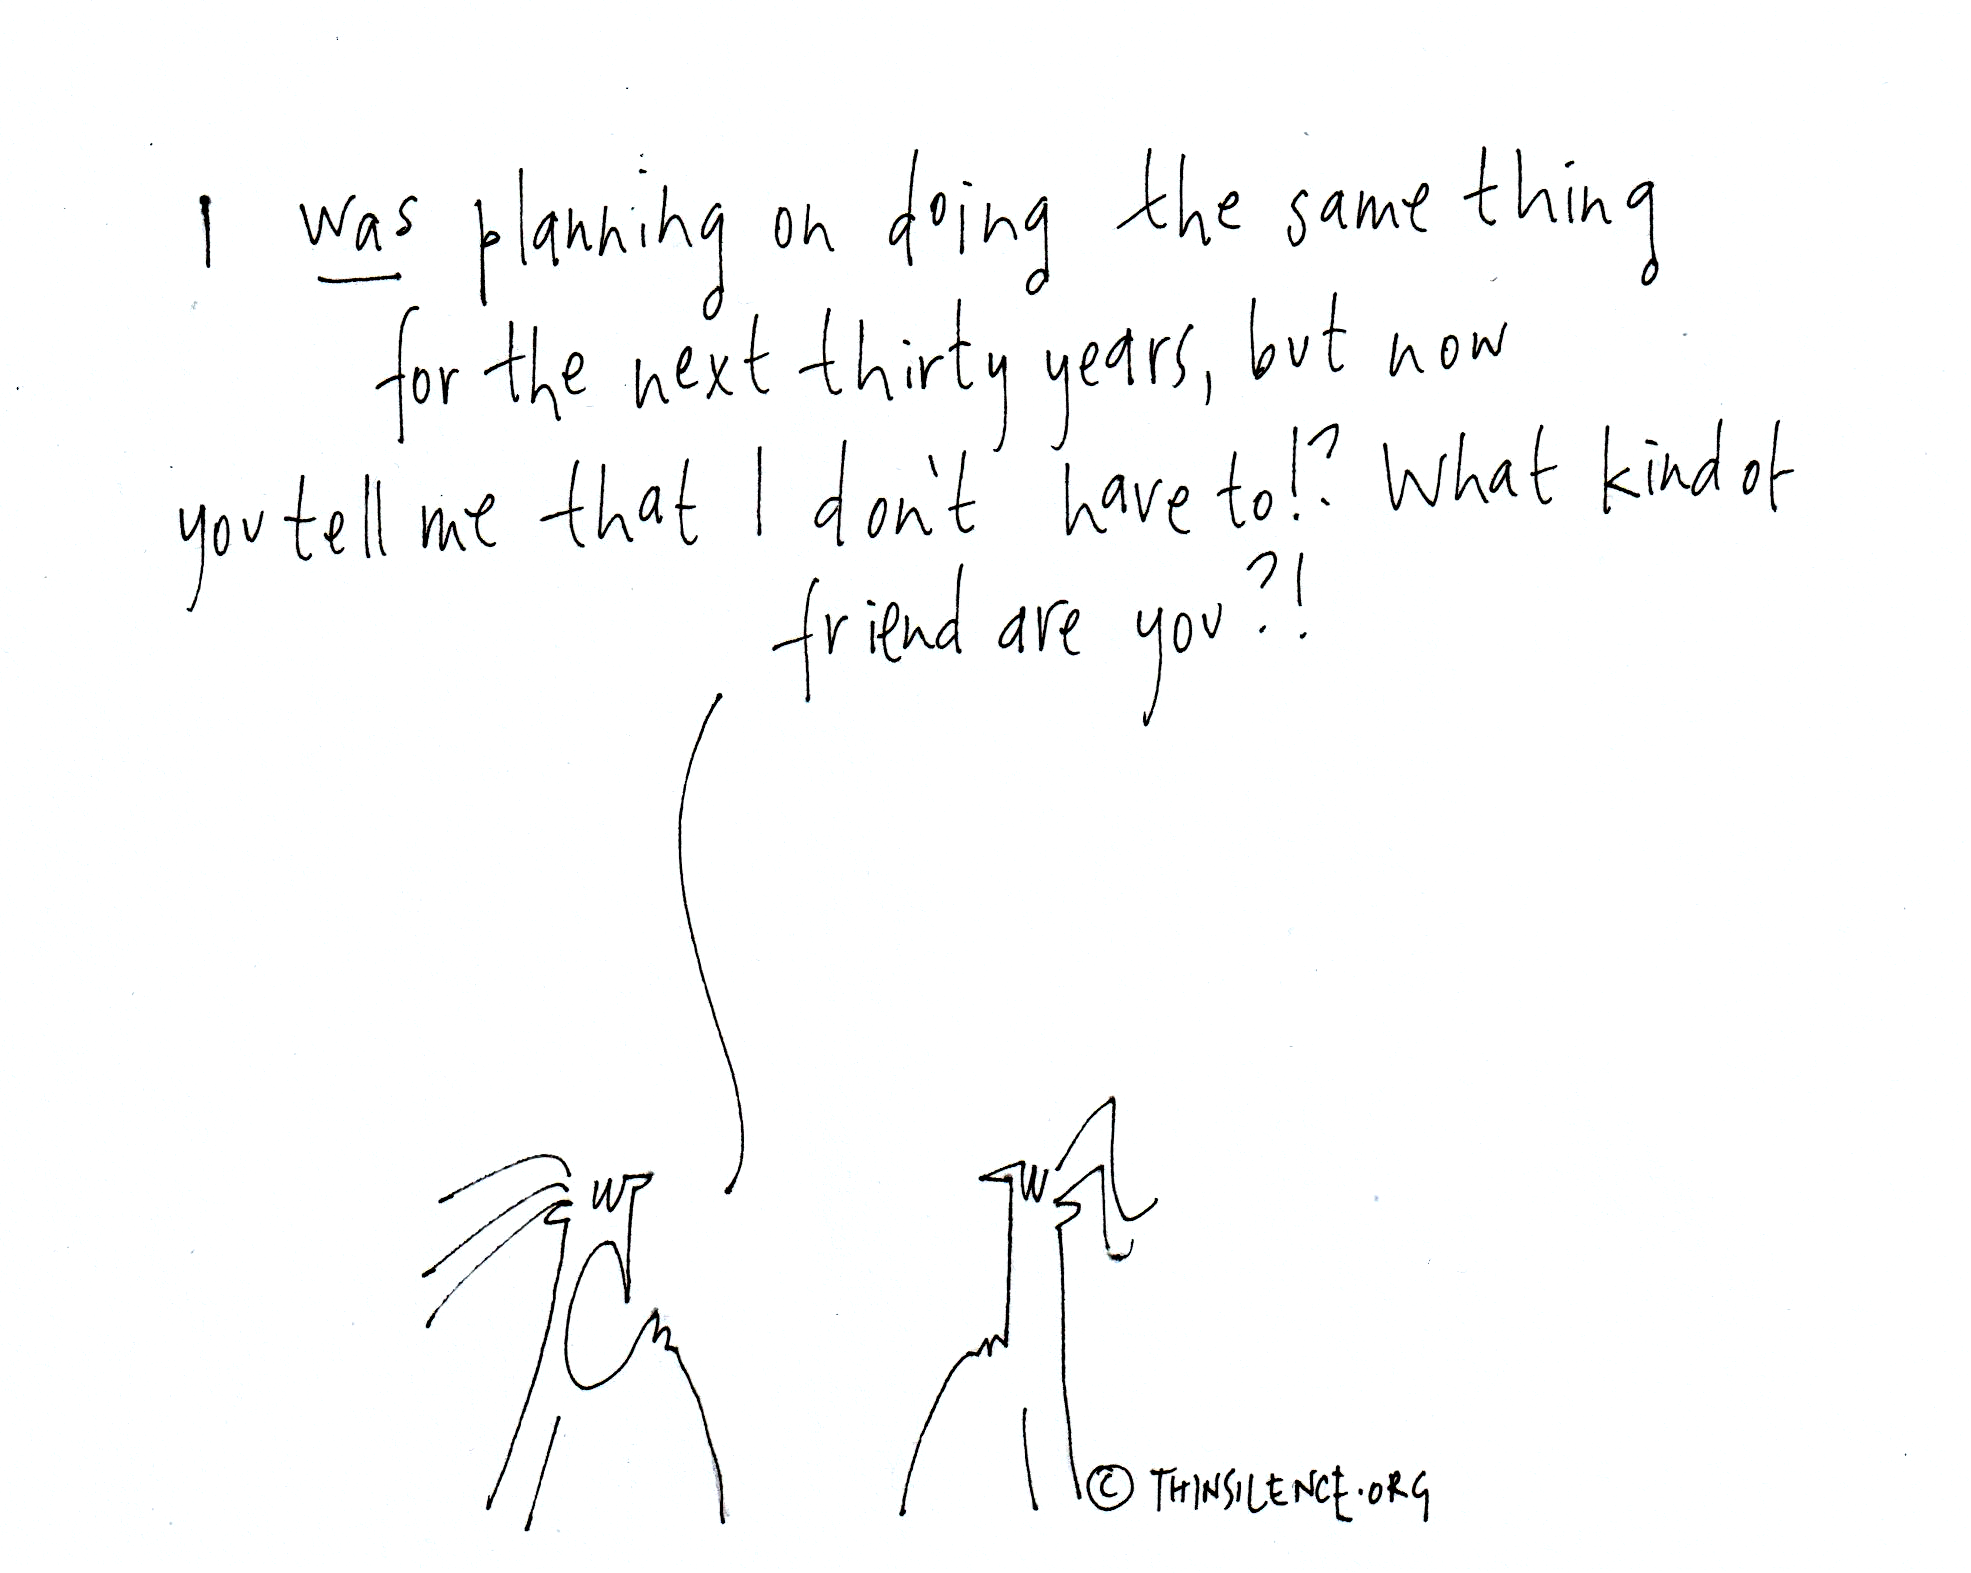 I was planning on doing the same thing
for the next thirty years, but now
you tell me that I don't have to!? What kind of
friend are you?!
© THINSILENCE.ORG